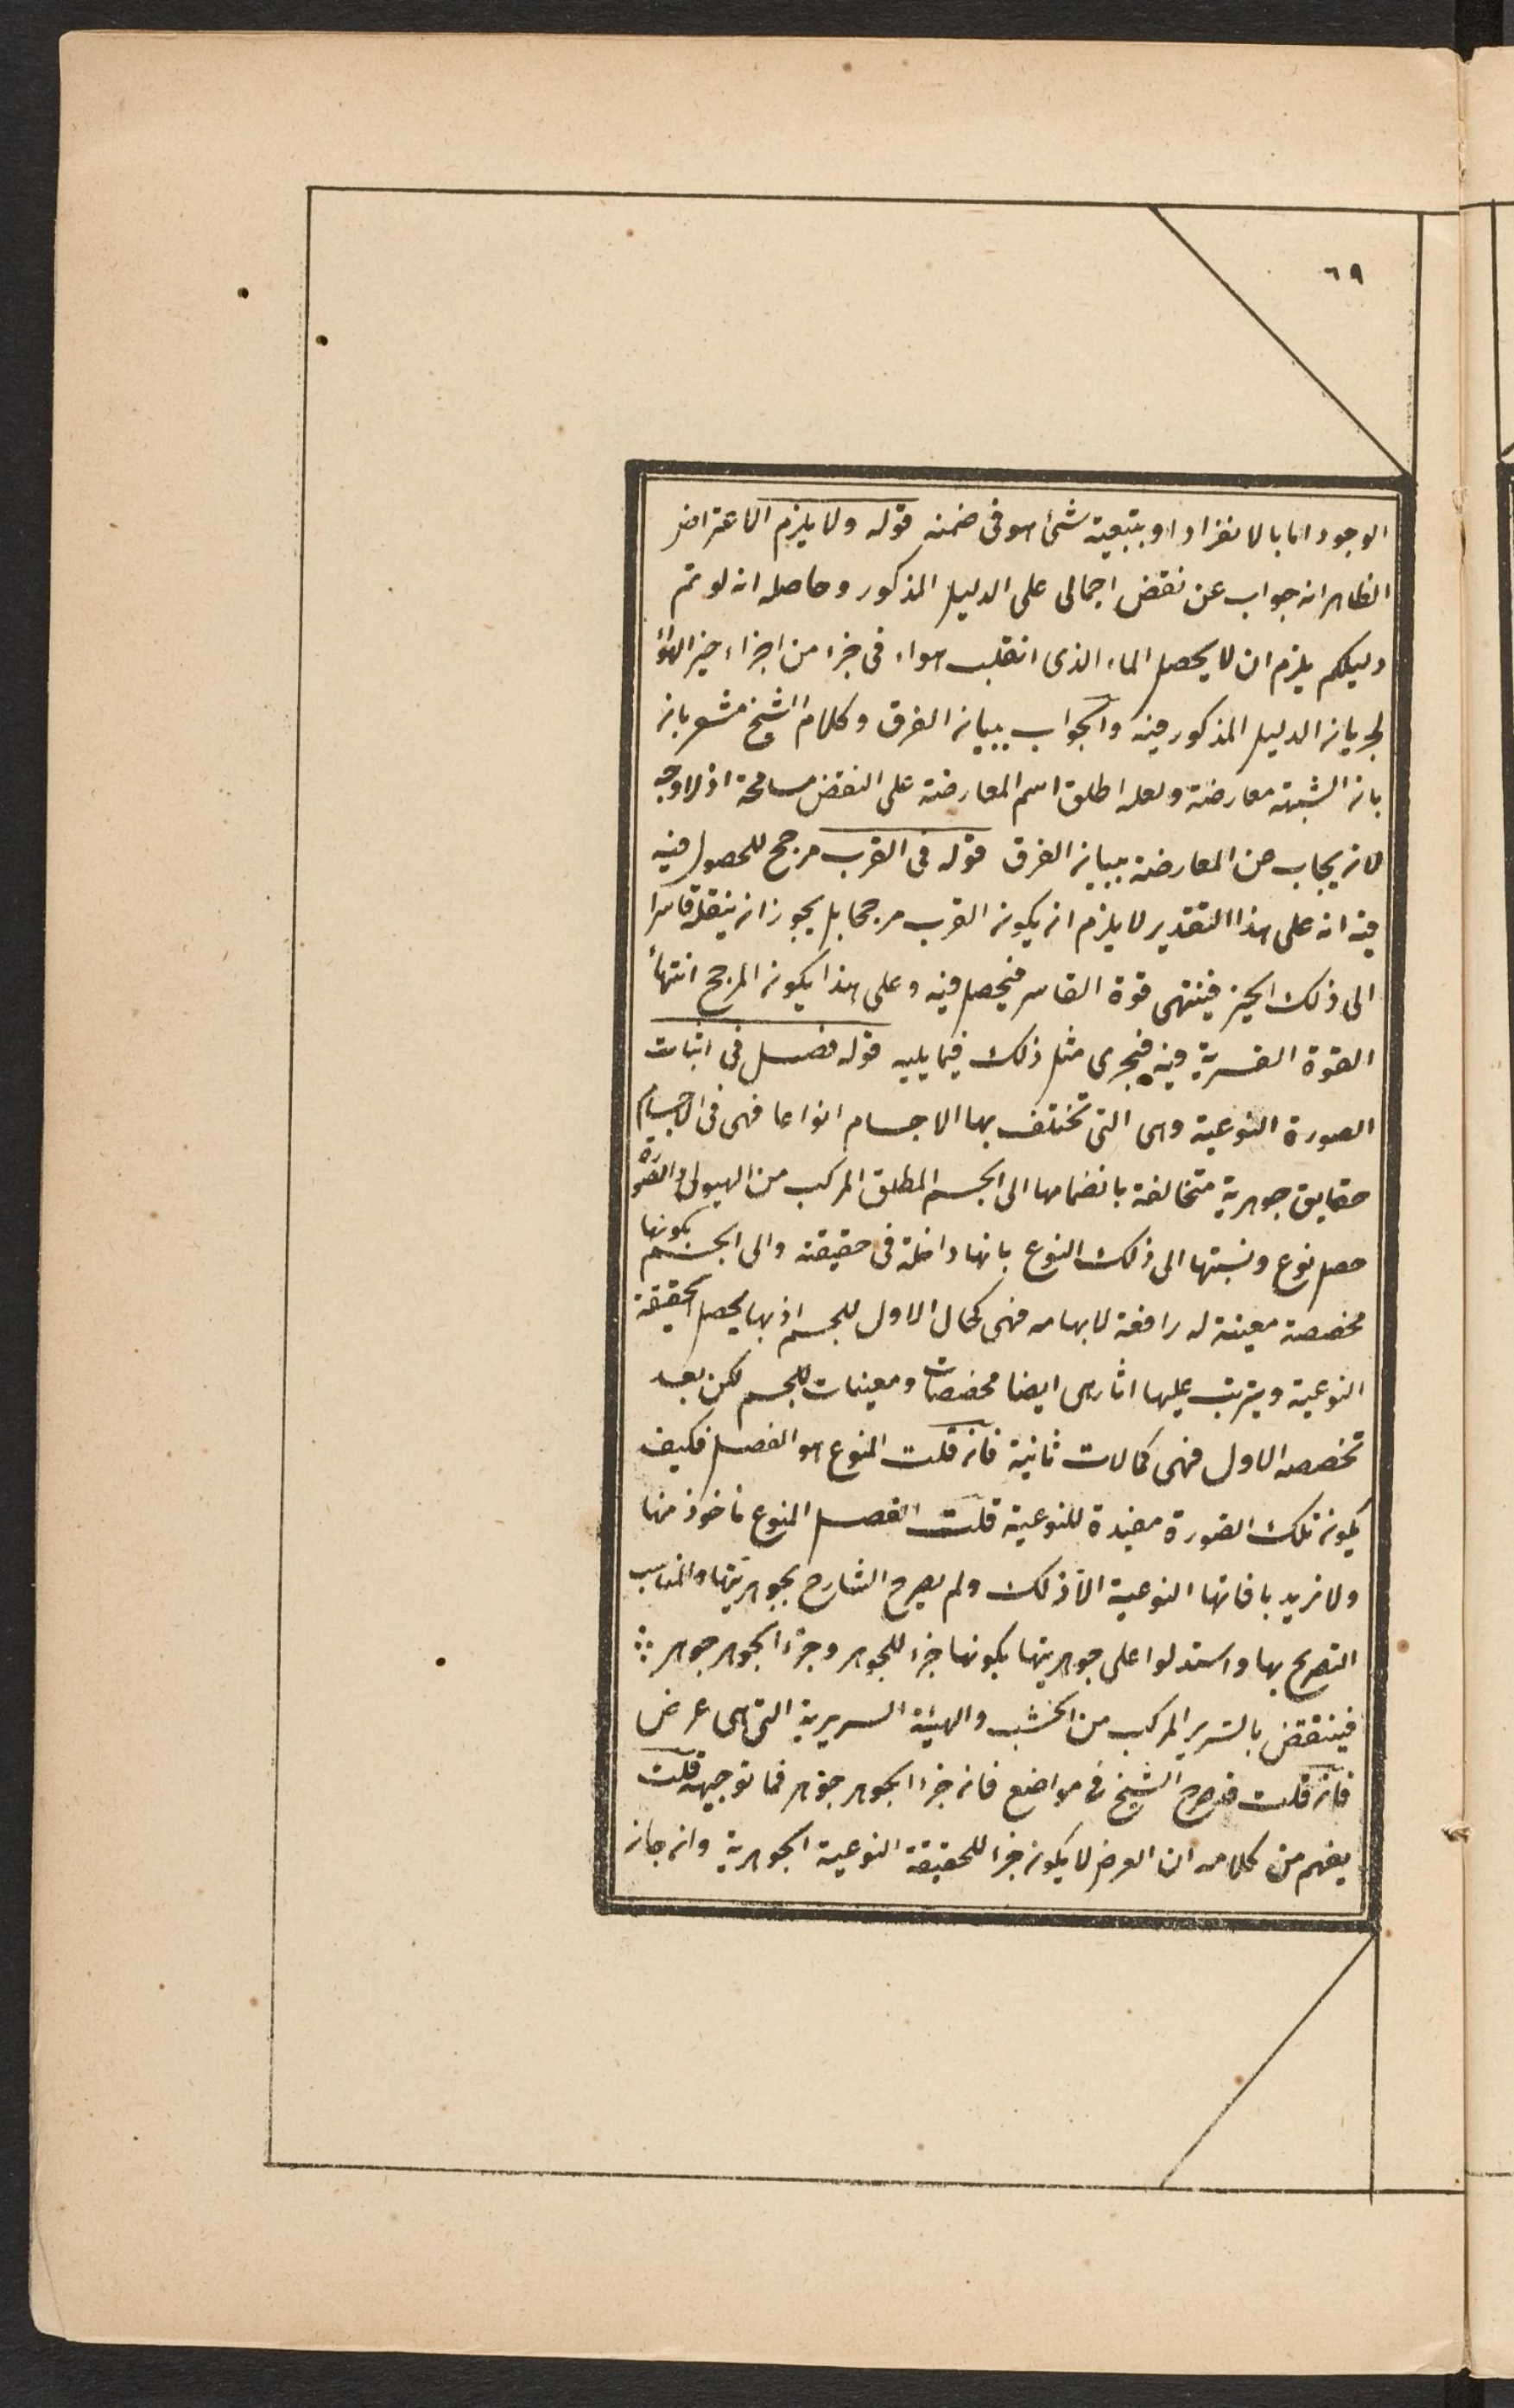 ٦٩
الوجود اما بالانفراد او بتبعية شئ هو فى ضمنه قوله ولا يلزم الاعتراض
الظاهر انه جواب عن نقض اجمالى على الدليل المذكور وحاصله انه لو تم
دليلكم يلزم ان لا يحصل الماء الذى انقلب هواء فى جزء من اجزاء حيز الهواء
لجريان الدليل المذكور فيه والجواب ببيان الفرق وكلام الشيخ مشعر بان
بان الشبهة معارضة ولعله اطلق اسم المعارضة على النقض مسامحة اذ لا وجه
لان يجاب عن المعارضة ببيان الفرق قوله فى القرب مرجح للحصول فيه
فيه انه على هذا التقدير لا يلزم ان يكون القرب مرجحا بل يجوز ان ينقله قاسر
الى ذلك الحيز فينتهى قوة القاسر فيحصل فيه وعلى هذا يكون المرجح انتهاء
القوة القسرية فيه فيجرى مثل ذلك فيما يليه قوله فصل فى اثبات
الصورة النوعية وهى التى تختلف بها الاجسام انواعا فهى فى الاجسام
حقايق جوهرية متخالفة بانضمامها الى الجسم المطلق المركب من الهيولى والصورة
حصل نوع ونسبتها الى ذلك النوع بانها داخلة فى حقيقته والى الجسم بكونها
مخصصة معينة له رافعة لابهامه فهى كمال الاول للجسم اذ بها يحصل الحقيقة
النوعية ويترتب عليها اثار هى ايضا مخصصات ومعينات للجسم لكن بعد
تخصصه الاول فهى كمالات ثانية فان قلت المنوع هو الفصل فكيف
يكون تلك الصورة مفيدة للنوعية قلت الفصل المنوع ماخوذ منها
ولا نريد بافادتها النوعية الا ذلك ولم يصرح الشارح بجوهريتها والمناسب
التصريح بها واستدلوا على جوهريتها بكونها جزء للجوهر وجزء الجوهر جوهر
فينتقض بالسرير المركب من الخشب والهيئة السريرية التى هى عرض
فان قلت صرح الشيخ فى مواضع فان جزء الجوهر جوهر فما توجيهه قلت
يفهم من كلامه ان العرض لا يكون جزء للحقيقة النوعية الجوهرية وان جاز